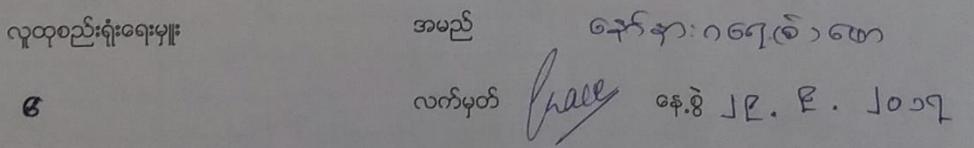 လူထုစည်းရုံးရေးမှူး အမည် နော်နားဂရေ(စ်)ဖော
၆ လက်မှတ် Grace နေ့စွဲ ၂၉. ၉. ၂၀၁၇